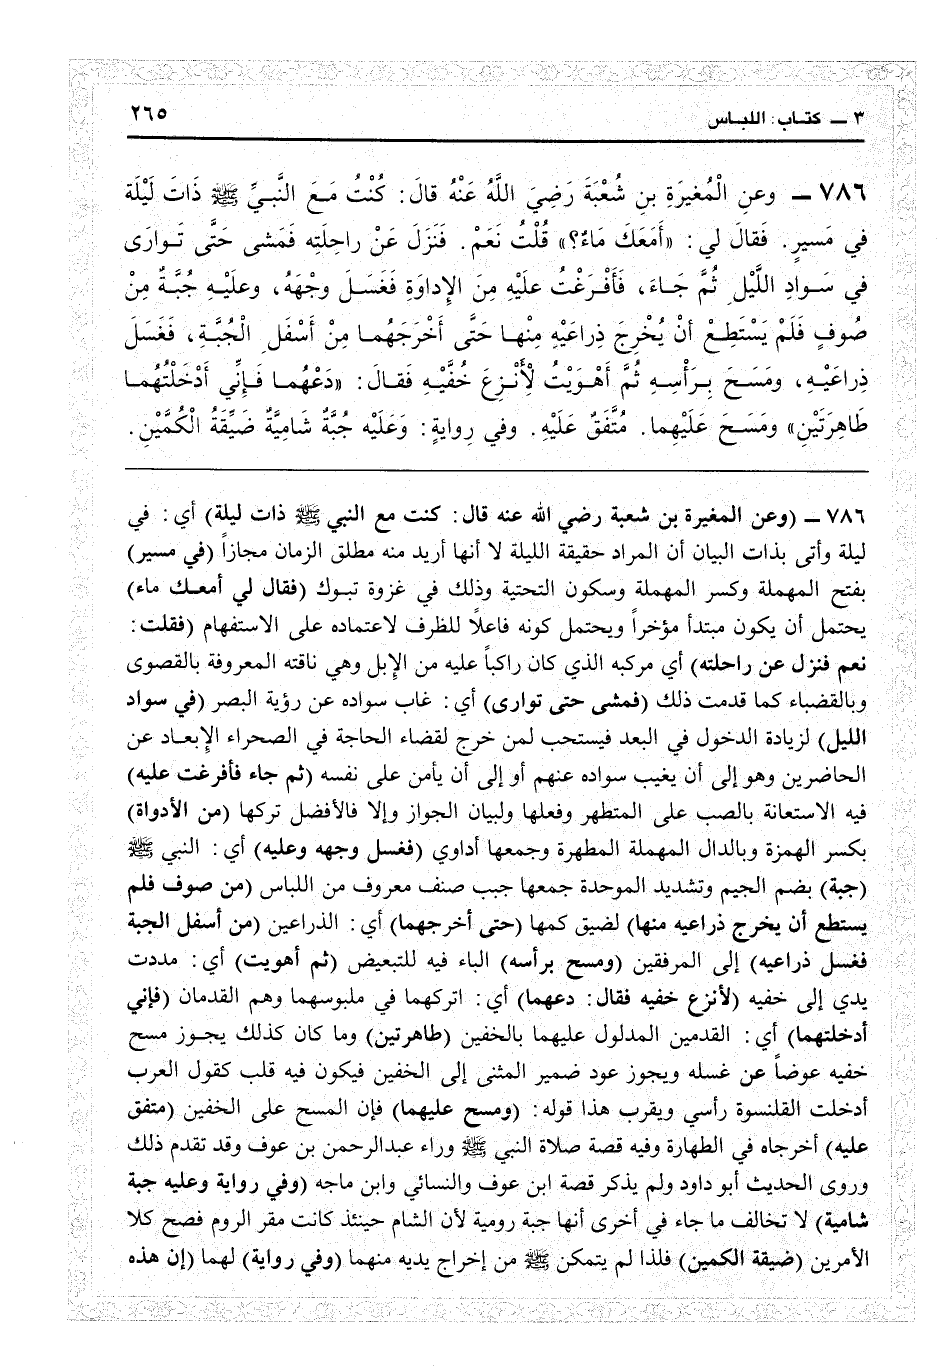 ٣ ـ كتـاب: اللبـاس
٢٦٥
٧٨٦ ـ وعنِ الْمُغيرَةِ بنِ شُعْبَةَ رَضِيَ اللَّهُ عَنْهُ قالَ: كُنْتُ مَعَ النَّبـيِّ ﷺ ذَاتَ لَيْلَة
في مَسيرٍ. فَقالَ لي: «أَمَعَكَ مَاءٌ؟» قُلْتُ نَعَمْ. فَنَزَلَ عَنْ راحِلَتِه فَمَشى حَتَّى تَـوارَى
في سَـوادِ اللَّيْلِ ثُمَّ جَـاءَ، فَأَفْـرَغْتُ علَيْهِ مِنَ الإِداوَةِ فَغَسَـلَ وجْهَهُ، وعلَيْـهِ جُبَّـةٌ مِنْ
صُوفٍ فَلَمْ يَسْتَطِـعْ أنْ يُخْرِجَ ذِراعَيْهِ مِنْهـا حَتَّى أَخْرَجَهُمـا مِنْ أَسْفَلِ الْجُبَّـةِ، فَغَسَلَ
ذِراعَيْـهِ، ومَسَـحَ بِـرَأْسِـهِ ثُمَّ أَهْـوَيْتُ لِأَنْـزِعَ خُفَّيْـهِ فَقـالَ: «دَعْهُمـا فَـإِنِّي أَدْخَلْتُهُمـا
طَاهِرَتَيْنِ» ومَسَـحَ عَلَيْهِما. مُتَّفَقٌ عَلَيْهِ. وفي رِوايةٍ: وَعَلَيْه جُبَّةٌ شَامِيَّةٌ ضَيِّقَةُ الْكُمَّيْنِ.
٧٨٦ ـ (وعن المغيرة بن شعبة رضي الله عنه قال: كنت مع النبي ﷺ ذات ليلة) أي: في
ليلة وأتى بذات البيان أن المراد حقيقة الليلة لا أنها أريد منه مطلق الزمان مجازاً (في مسير)
بفتح المهملة وكسر المهملة وسكون التحتية وذلك في غزوة تبـوك (فقال لي أمعـك ماء)
يحتمل أن يكون مبتدأ مؤخراً ويحتمل كونه فاعلًا للظرف لاعتماده على الاستفهام (فقلت:
نعم فنزل عن راحلته) أي مركبه الذي كان راكباً عليه من الإبل وهي ناقته المعروفة بالقصوى
وبالقضباء كما قدمت ذلك (فمشى حتى توارى) أي: غاب سواده عن رؤية البصر (في سواد
الليل) لزيادة الدخول في البعد فيستحب لمن خرج لقضاء الحاجة في الصحراء الإبعـاد عن
الحاضرين وهو إلى أن يغيب سواده عنهم أو إلى أن يأمن على نفسه (ثم جاء فأفرغت عليه)
فيه الاستعانة بالصب على المتطهر وفعلها ولبيان الجواز وإلا فالأفضل تركها (من الأدواة)
بكسر الهمزة وبالدال المهملة المطهرة وجمعها أداوي (فغسل وجهه وعليه) أي: النبي ﷺ
(جبة) بضم الجيم وتشديد الموحدة جمعها جبب صنف معروف من اللباس (من صوف فلم
يستطع أن يخرج ذراعيه منها) لضيق كمها (حتى أخرجهما) أي: الذراعين (من أسفل الجبة
فغسل ذراعيه) إلى المرفقين (ومسح برأسه) الباء فيه للتبعيض (ثم أهويت) أي: مددت
يدي إلى خفيه (لأنزع خفيه فقال: دعهما) أي: اتركهما في ملبوسهما وهم القدمان (فإني
أدخلتهما) أي: القدمين المدلول عليهما بالخفين (طاهرتين) وما كان كذلك يجـوز مسح
خفيه عوضاً عن غسله ويجوز عود ضمير المثنى إلى الخفين فيكون فيه قلب كقول العرب
أدخلت القلنسوة رأسي ويقرب هذا قوله: (ومسح عليهما) فإن المسح على الخفين (متفق
عليه) أخرجاه في الطهارة وفيه قصة صلاة النبي ﷺ وراء عبدالرحمن بن عوف وقد تقدم ذلك
وروى الحديث أبو داود ولم يذكر قصة ابن عوف والنسائي وابن ماجه (وفي رواية وعليه جبة
شامية) لا تخالف ما جاء في أخرى أنها جبة رومية لأن الشام حينئذ كانت مقر الروم فصح كلا
الأمرين (ضيقة الكمين) فلذا لم يتمكن ﷺ من إخراج يديه منهما (وفي رواية) لهما (إن هذه